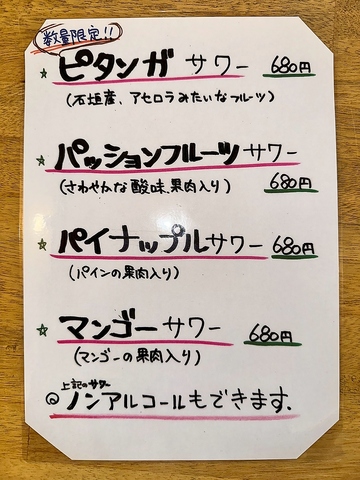 数量限定!!
☆ピタンガサワー 680円
(石垣産、アセロラみたいなフルーツ)
☆パッションフルーツサワー
(さわやかな酸味、果肉入り) 680円
☆パイナップルサワー 680円
(パインの果肉入り)
☆マンゴーサワー 680円
(マンゴーの果肉入り)
上記のサワー
◎ノンアルコールもできます.